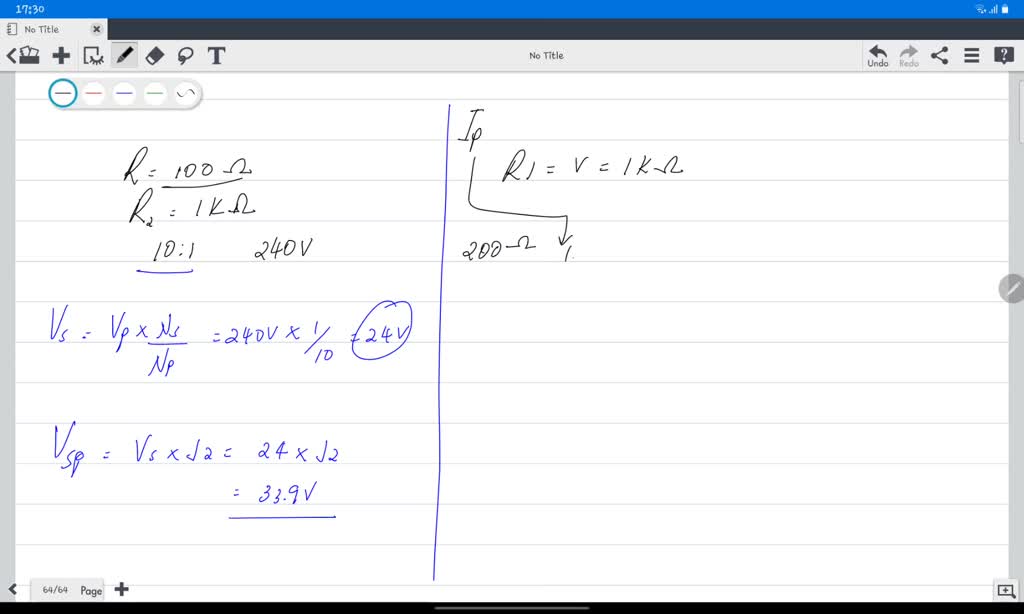 17:30
No Title
T
No Title
Undo
Redo
R = 100 Ω
R2 = 1KΩ
10:1 240V
Vs = Vp x Ns/Np = 240V x 1/10 = 24V
Vsp = Vs x √2 = 24 x √2
= 33.9V
Ip
R1 = V = 1KΩ
200Ω 1.
64/64 Page